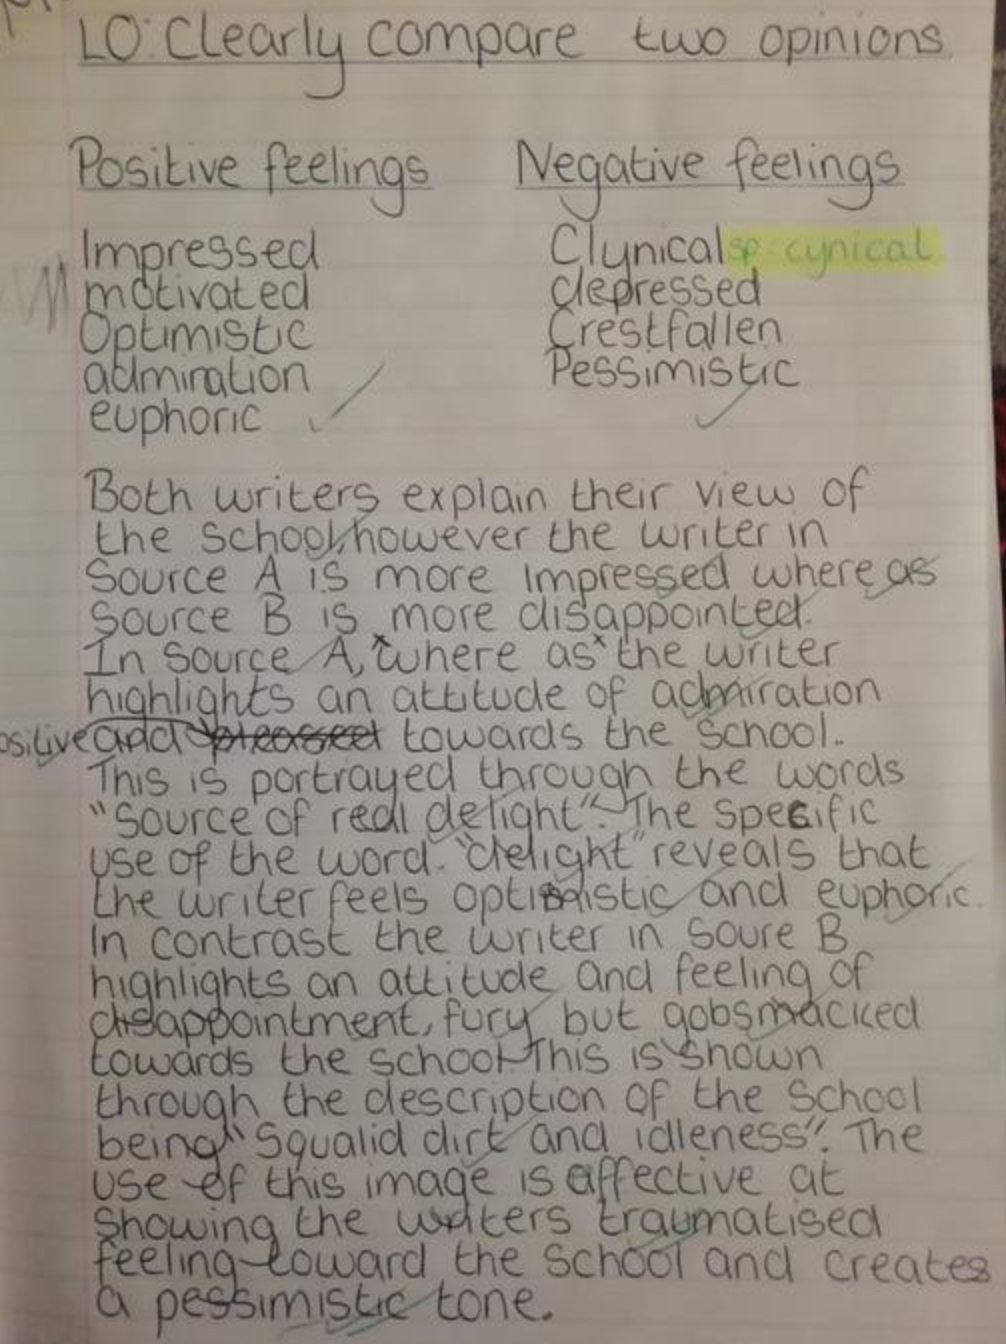 LO: Clearly compare two opinions
Positive feelings Negative feelings
Impressed Clynical sp: cynical
motivated depressed
Optimistic Crestfallen
admiration Pessimistic
euphoric
Both writers explain their view of
the school, however the writer in
Source A is more impressed where as
Source B is more disappointed.
In Source A, *where as* the writer
highlights an attitude of admiration
ositive and pleased towards the school.
This is portrayed through the words
"Source of real delight". The specific
use of the word "delight" reveals that
the writer feels optimistic and euphoric.
In contrast the writer in Soure B
highlights an attitude and feeling of
disappointment, fury but gobsmacked
towards the school. This is shown
through the description of the school
being "Squalid dirt and idleness". The
use of this image is affective at
showing the writers traumatised
feeling toward the school and creates
a pessimistic tone.